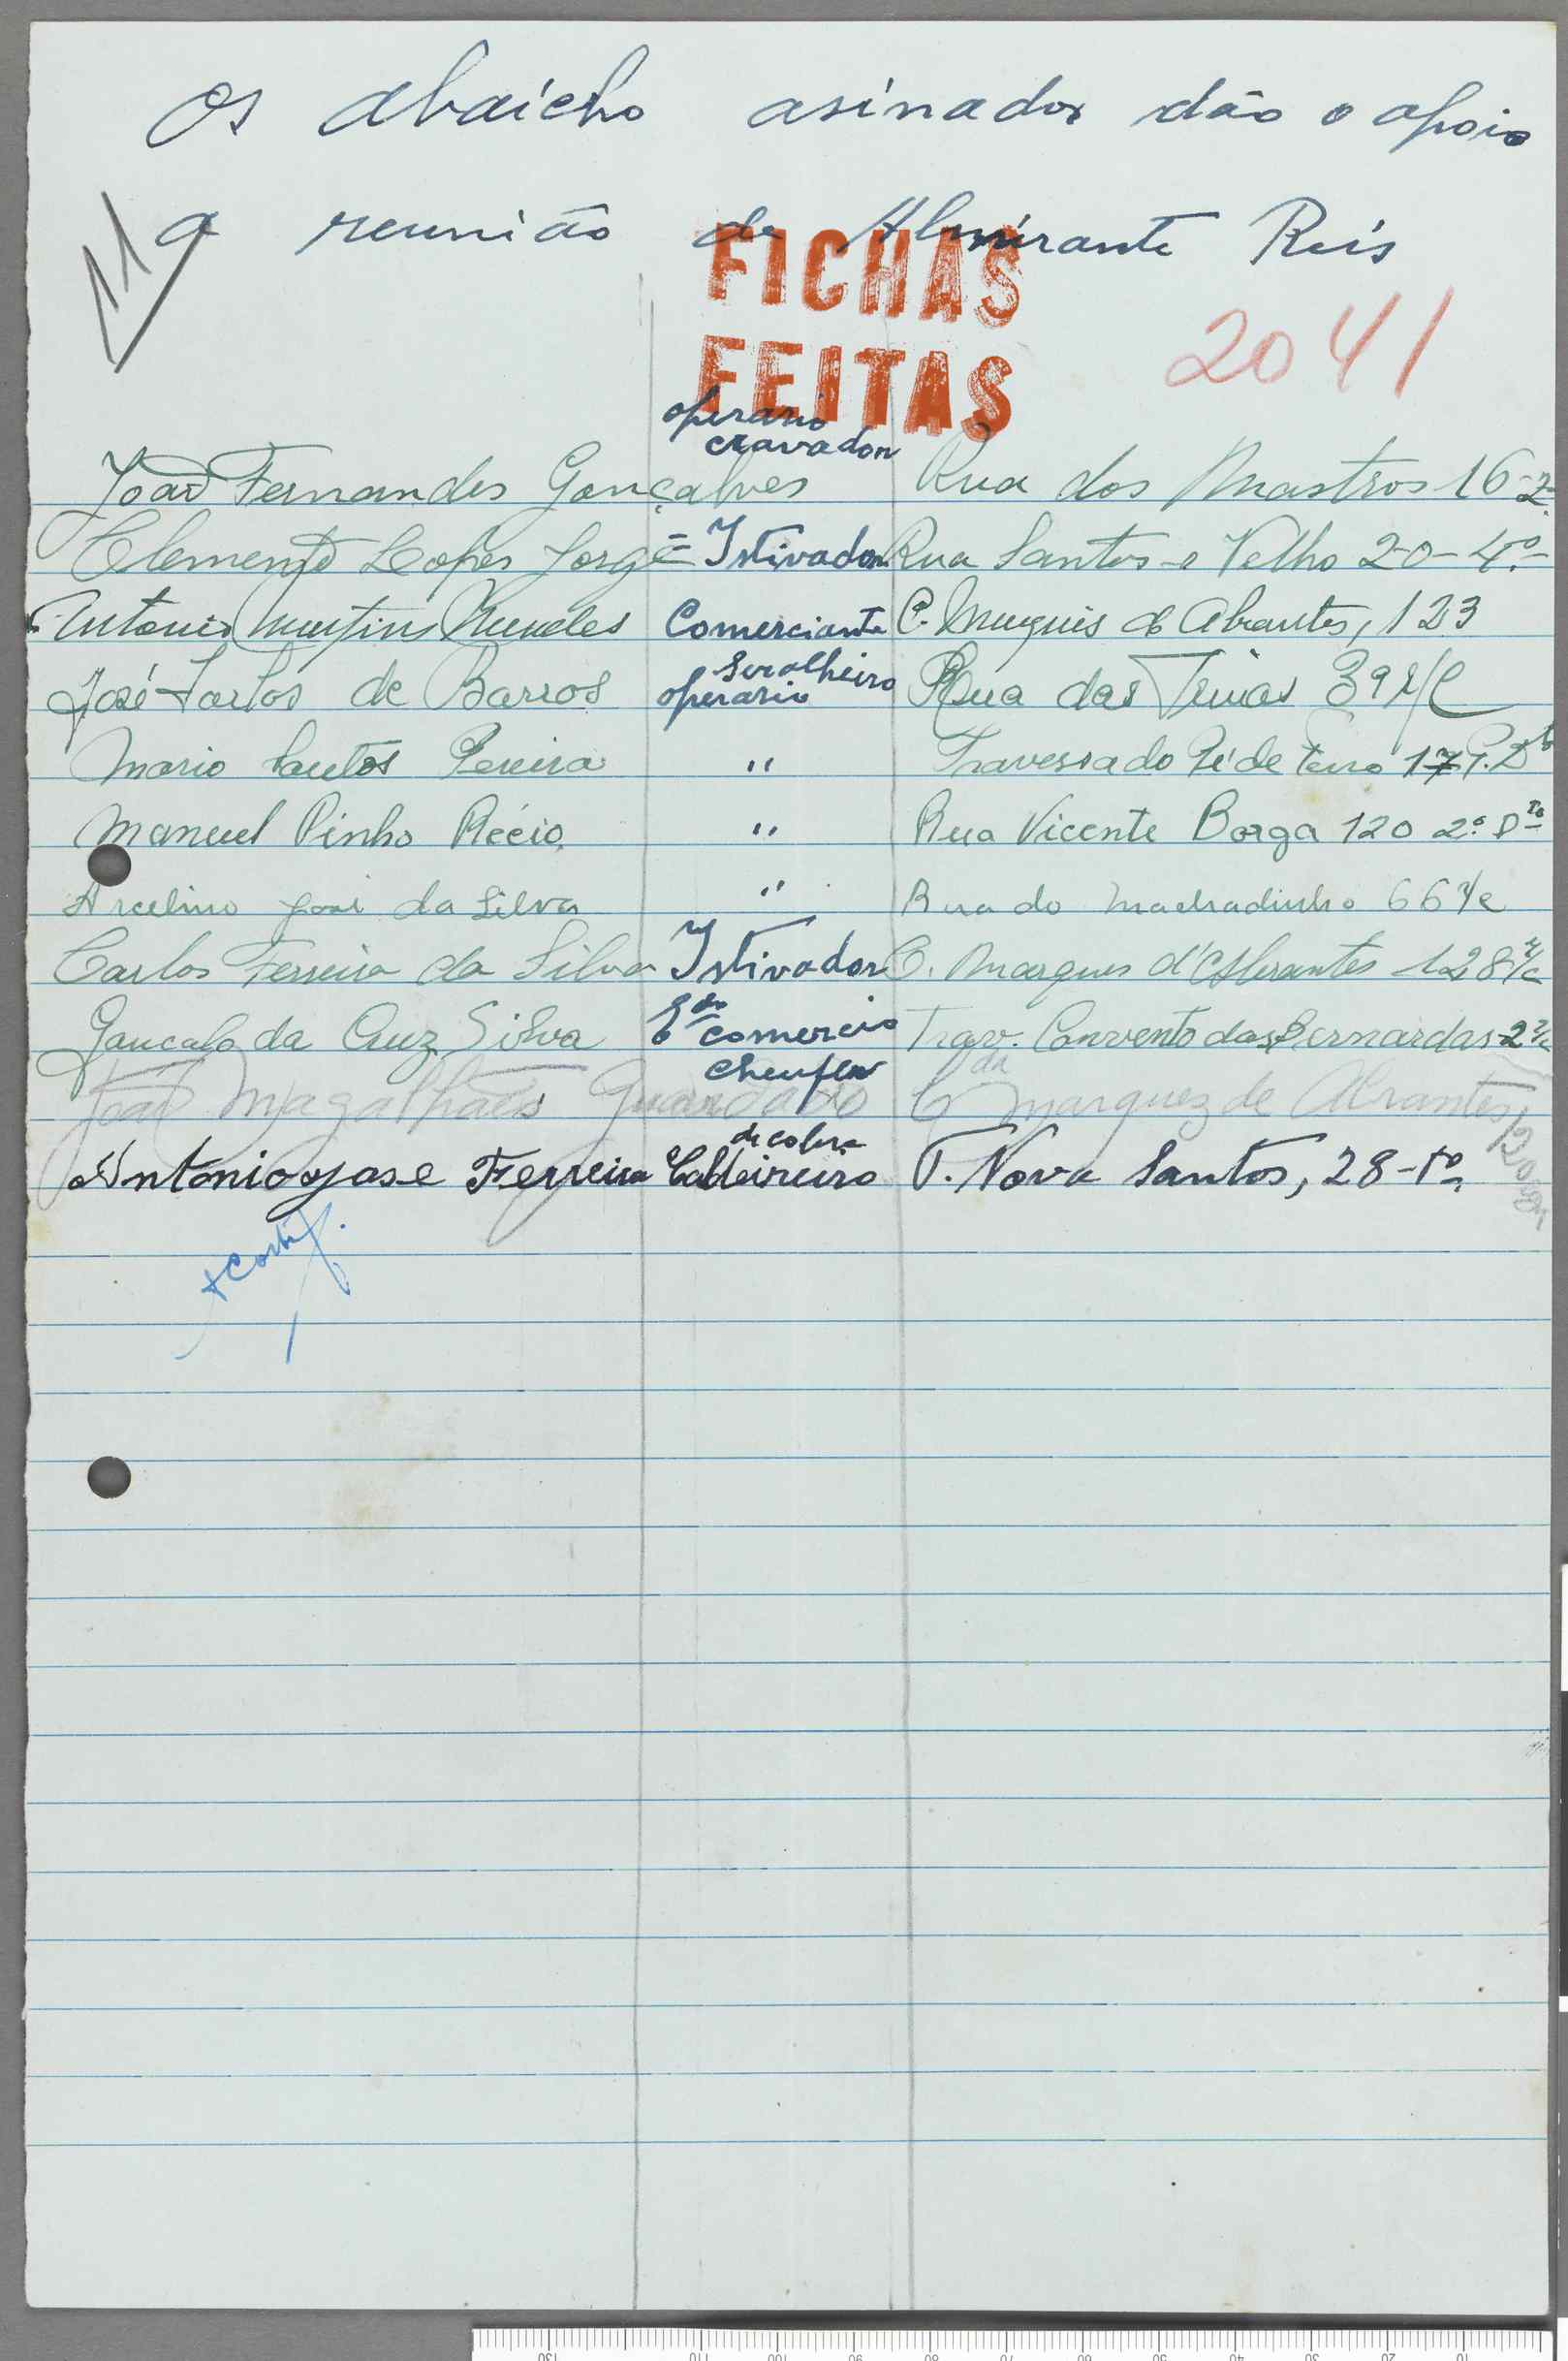 Os abaicho asinados dão o apoio
11 a reunião de Almirante Reis
FICHAS
FEITAS
2041
operario
cravador
João Fernandes Gonçalves Rua dos Mastros 16-2º
Clemente Lopes Jorge = Istivador Rua Santos-o Velho 20-4º
Antonio Martins Comerciante C. Marquês de Abrantes, 123
José Santos de Barros operario seralheiro Rua das Trinas 39 r/c
Mario Santos Pereira " Travessa do Pé de Ferro 17
Manuel Pinho Récio " Rua Vicente Borga 120 2º Dto
Arcelino José da Silva " Rua do Machadinho 66 r/c
Carlos Ferreira da Silva Istivador C. Marques d'Abrantes 128 r/c
Gonçalo da Cruz Silva Edo comercio Trav. Convento das Bernardas-2 r/c
João Magalhães Guardado Cheufer C da Marquez de Abrantes,
Antonio Jose Ferreira Caldeireiro de cobre T. Nova Santos, 28-1º